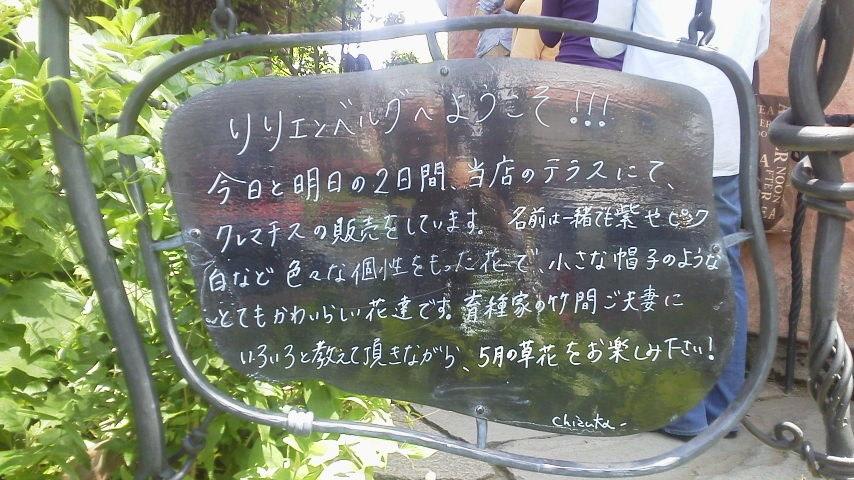 リリエンベルグへようこそ!!!
今日と明日の2日間、当店のテラスにて、
クレマチスの販売をしています。名前は一緒でも紫やピンク
白など色々な個性をもった花で、小さな帽子のような
とてもかわいらしい花達です。育種家の竹間ご夫妻に
いろいろと教えて頂きながら、5月の草花をお楽しみ下さい!
Chizuka
TEA
A
NOON
AFTER
TEA